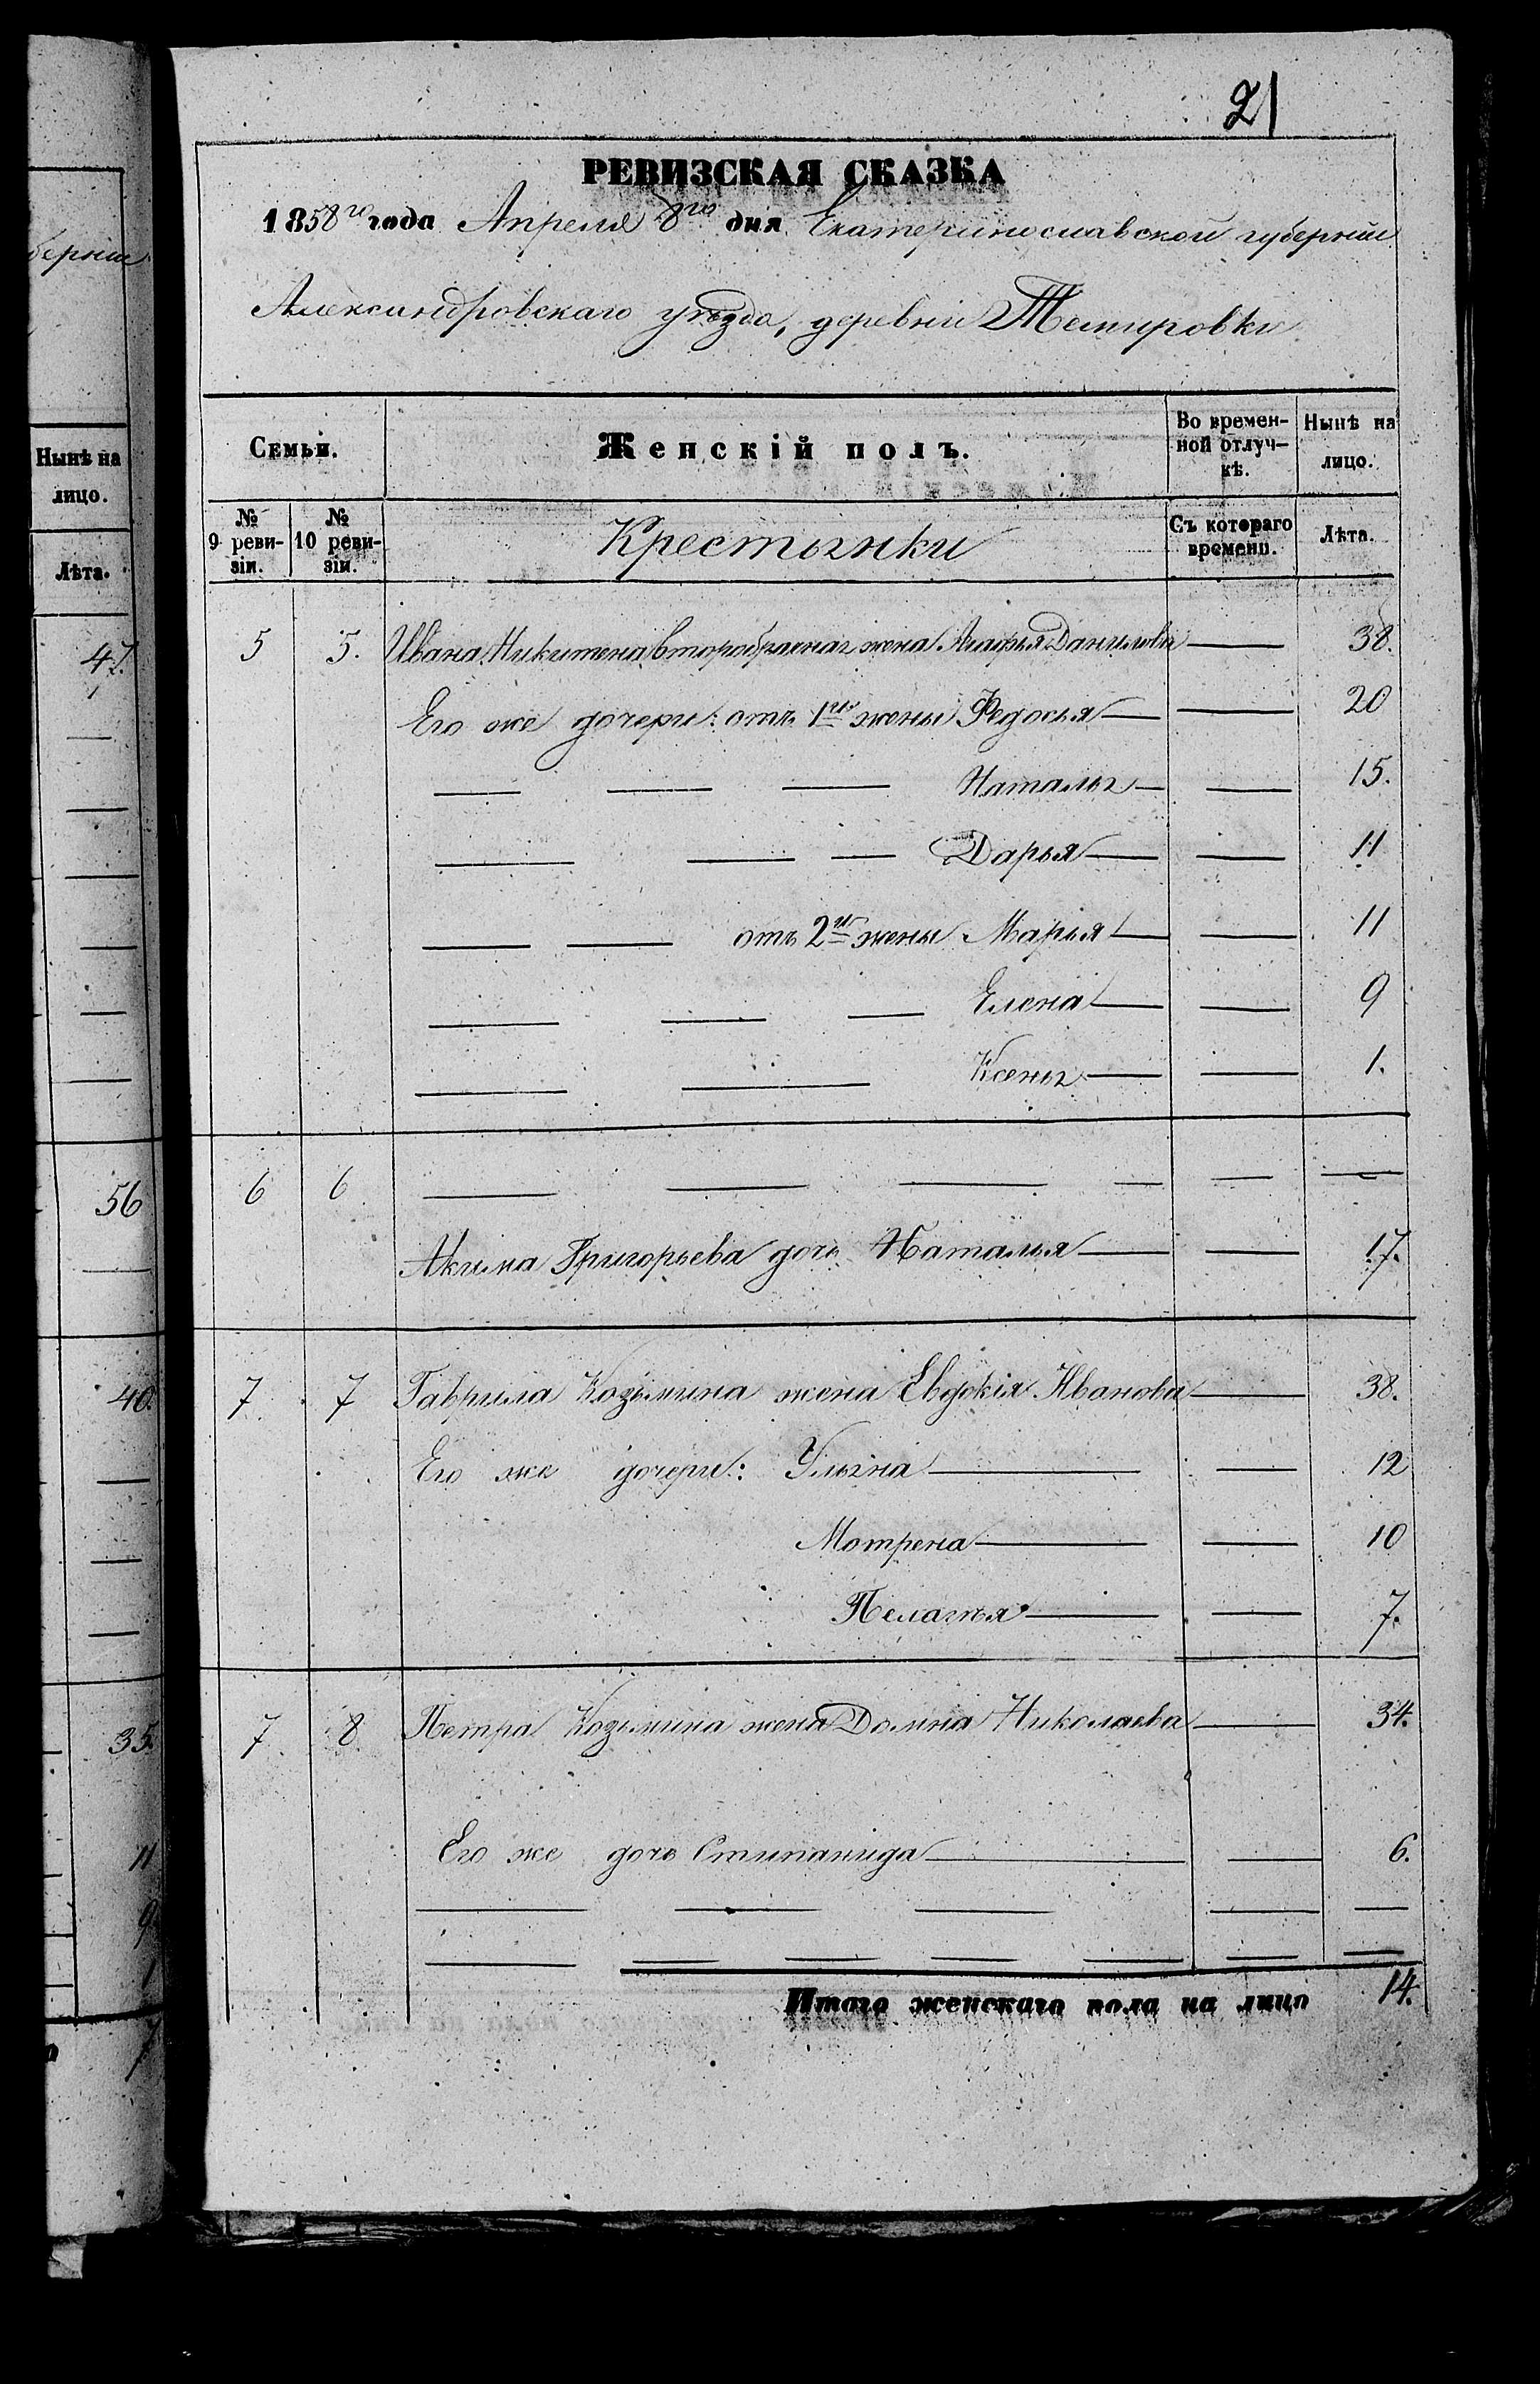 бернии
Нынѣ на
лицо.
Лѣта.
47.
56
40.
35.
11
9.
1
7
21
РЕВИЗСКАЯ СКАЗКА
1858го года Апреля 8го дня Екатеринославской губернии
Александровскаго уѣзда, деревни Темировки
Семьи.
Женскій полъ.
Во времен-
ной отлуч-
кѣ.
Нынѣ на
лицо.
№
9 реви-
зіи.
№
10 реви-
зіи.
Крестьянки
Съ котораго
времени.
Лѣта.
5 5. Ивана Никитена второбрачная жена Агафья Данилова — 38.
Его же дочери: отъ 1й жены Федосья — — 20
— — — Наталья — — 15.
— — — Дарья — — 11
— — отъ 2й жены Марья — — 11
— — — Елена — — 9
— — Ксенья — — 1.
6 6 — — — — — —
Акима Григорьева дочь Наталья — — 17.
7 7 Гаврила Козьмина жена Евдокія Иванова — 38.
Его же дочери: Ульяна — — 12
Мотрена — — 10
Пелагея — — 7.
7 8 Петра Козьмина жена Домна Николаева — 34.
Его же дочь Стипанида — — 6.
— — — — —
— — — — — — —
Итого женскаго пола на лицо 14.